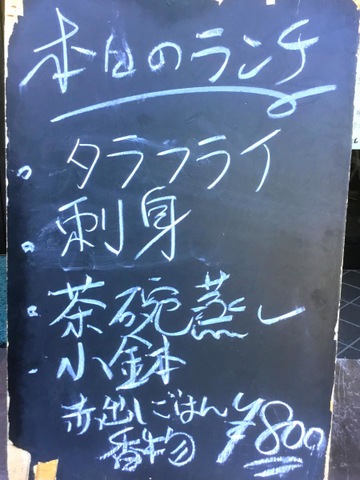 本日のランチ
・タラフライ
・刺身
・茶碗蒸し
・小鉢
赤出しごはん
香物
¥800